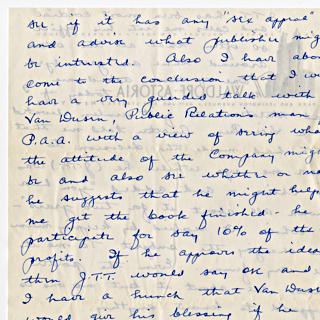 see if it has any "sex appeal"
and advise what publisher mig
be intrusted. Also I have abou
come to the conclusion that I wo
have a very guarded talk with
Van Dusin, Public Relations man
P.A.A. with a view of seeing wha
the attitude of the Company mig
be and also see whether or no
he suggests that he might help
me get the book finished - he
participate for say 10% of the
profits. If he approves the idea
then J.T.T. would say OK and
I have a hunch that Van Dus
would give his blessing if he